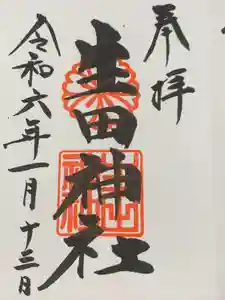 奉拝
生田神社
令和六年一月十三日